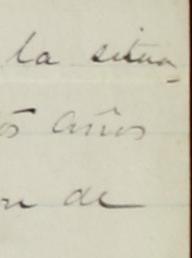 la situa-
años
de